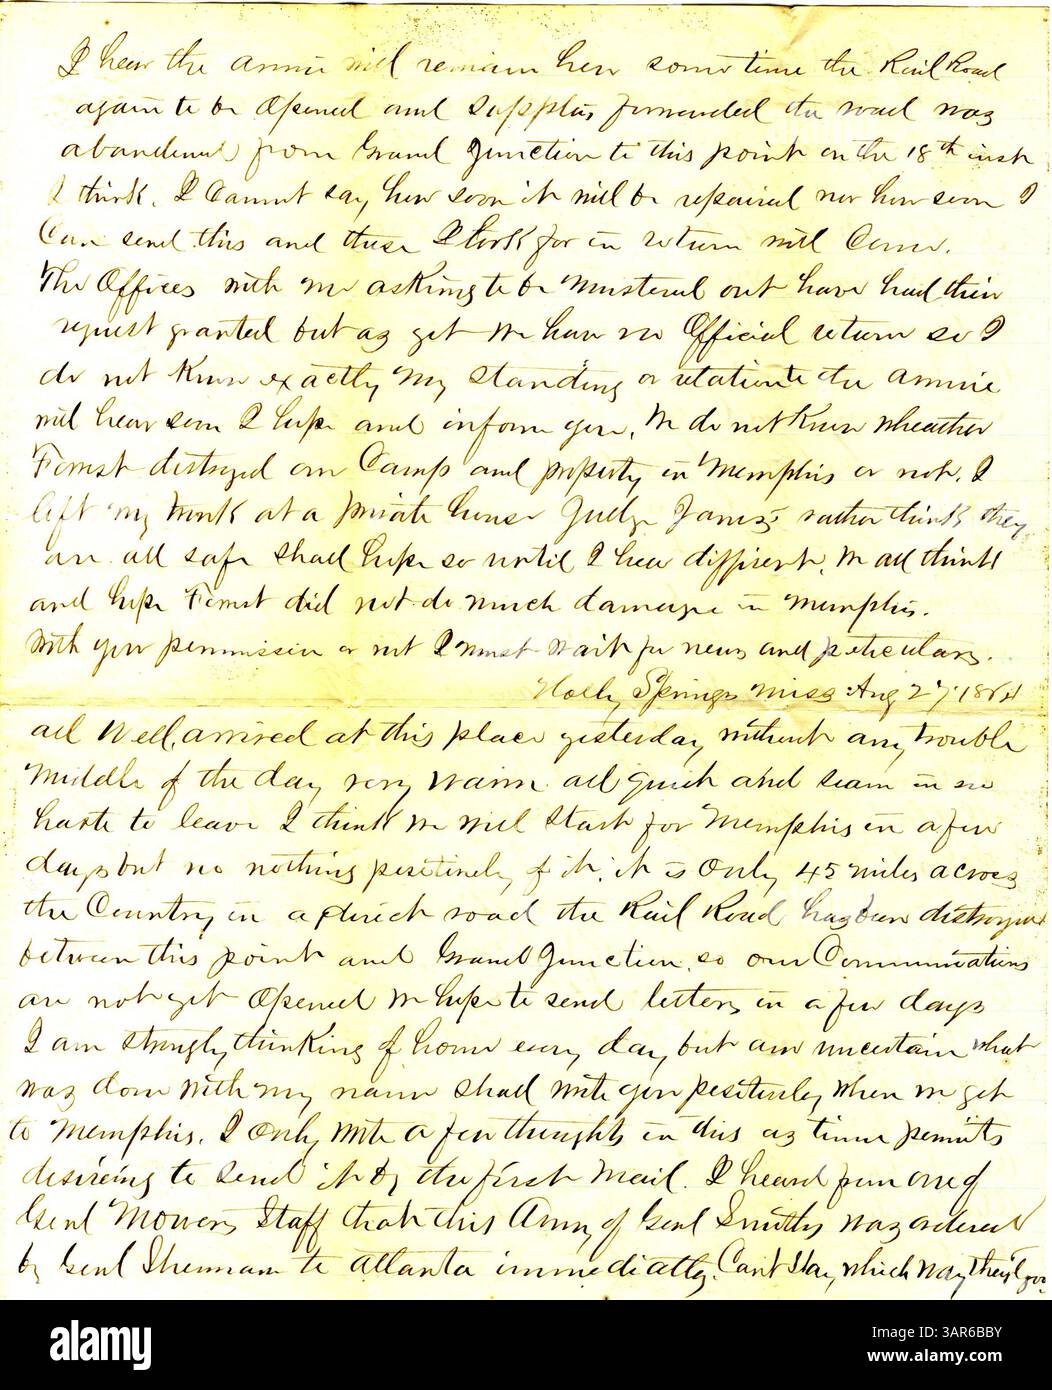 I hear the armie will remain here some time the Rail Road
again to be Opened and supplies forwarded the road was
abandened from Grand Junction to this point on the 18th inst
I think. I Cannot say how soon it will be repaired nor how soon I
Can send this and those I look for in return will Come.
The Offices with me asking to be Mustered out have had their
request granted but as yet we have no Official return so I
do not know exactly my standing or relation to the armie
will hear soon I hope and inform you. We do not know wheather
Forrest distroyed our Camp and property in Memphis or not. I
left my trunk at a private house Judge James rather think they
are all safe shall hope so until I hear diffirent. We all think
and hope Forrest did not do much damage in Memphis.
With your permission or not I must wait for news and peticulars.
Holly Springs Miss Aug 27, 1864
all Well, arrived at this place yesterday without any trouble
Middle of the day very warm all quiet and seam in no
haste to leave I think we will start for Memphis in a few
days but no nothing positively of it, it is Only 45 miles across
the Country in a direct road the Rail Road has been distroyed
between this point and Grand Junction, so our Communications
are not yet Opened We hope to send letters in a few days
I am strongly thinking of home every day but am uncertain what
was done with my name shall write you positively when we get
to Memphis. I Only write a few thoughts in this as time permits
desireing to send it by the first Mail. I heard from one of
Genl Mowers Staff that this Army of Genl Smiths was ordered
by Genl Shermam to Atlanta immediatly. Cant Say, which way they'l go.
alamy
Image ID: 3AR6BBY
www.alamy.com